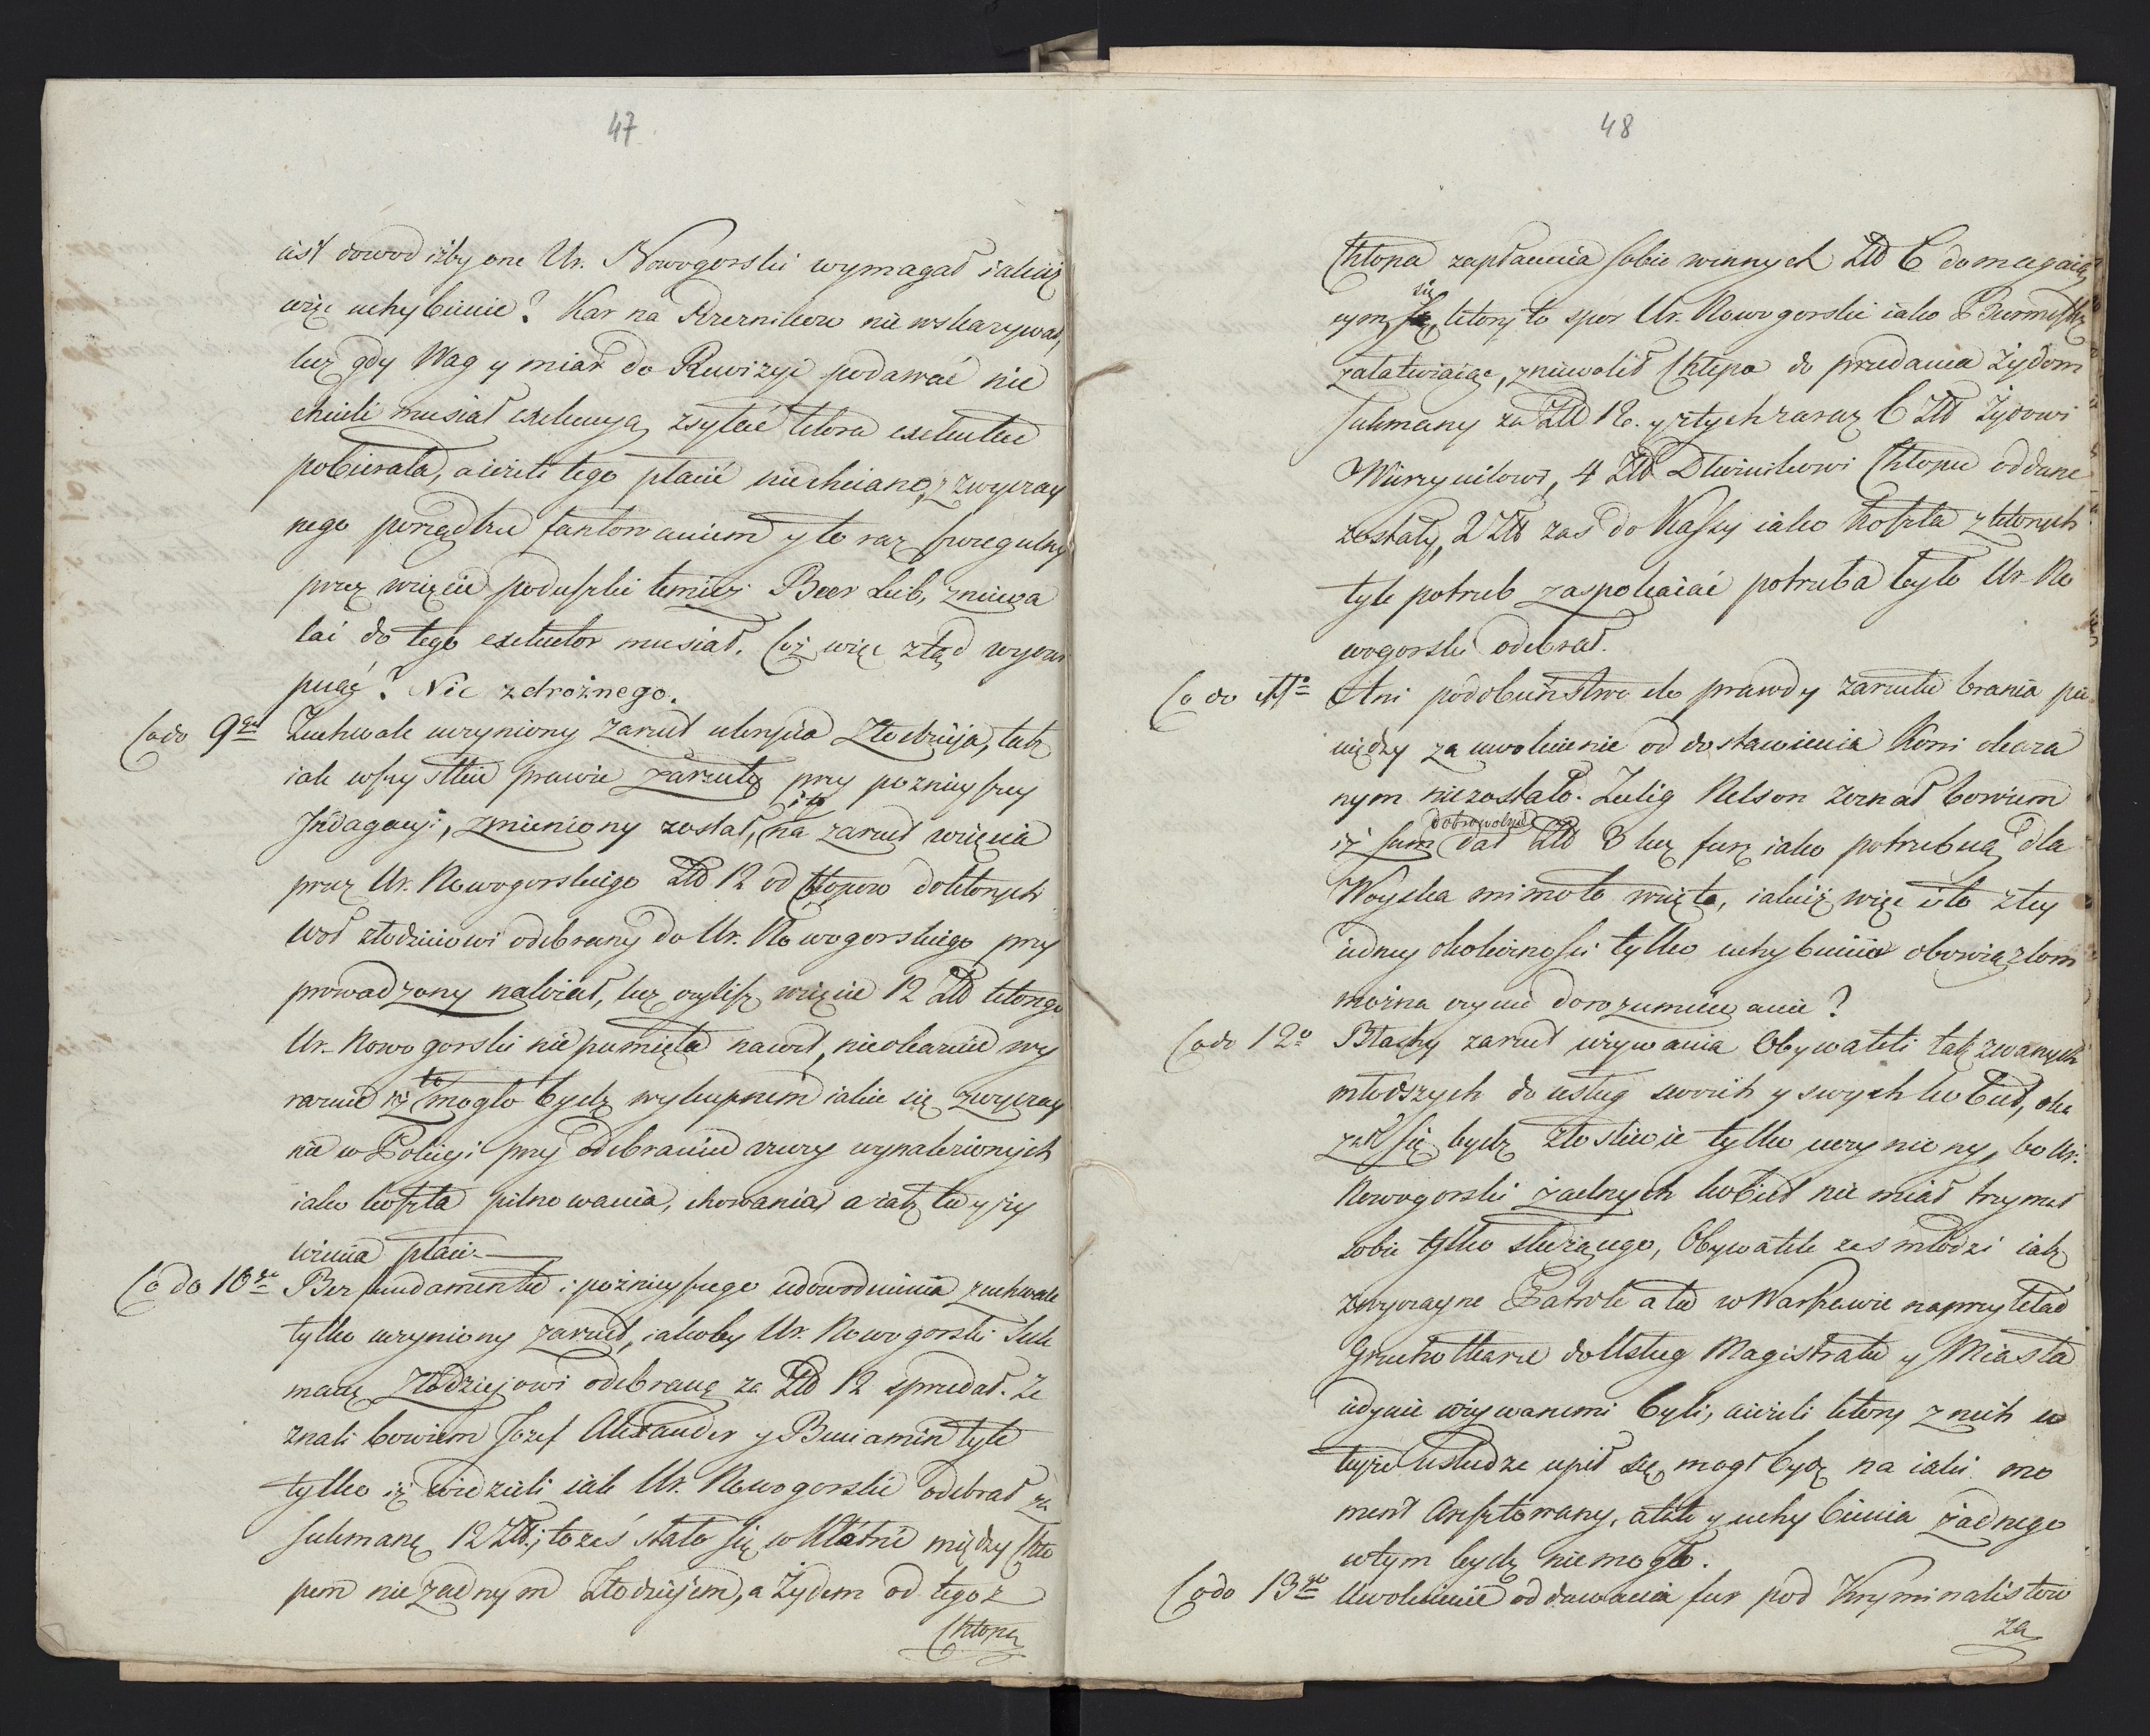 47
iest dowod iżby one Ur. Nowogorski wymagał iakież
więc uchybienie? Kar na Rzeznikow nie wskazywał,
lecz gdy Wag y miar do Rewizyi podawać nie
chcieli musiał exekucyą zsyłać ktora exekutne
pobierała, a ieżeli tego płacić niechciano, z zwyczay
nego porządku fantowaniem y to raz szczegulny
przez wzięcie poduszki temiż Beer Leib, zniewa
lać do tego exekutor musiał. Coż więc ztąd wyczer
pnąć? Nic zdrożnego.
Co do 9go Zuchwale uczyniony zarzut ukrycia Złodzieja, tak
iak wszystkie prawie zarzuty przy poznieyszey
Indagacyi, zmieniony został, i to na zarzut wzięcia
przez Ur. Nowogorskiego Złł 12 od Chłopow do ktorych
woł złodzieiowi odebrany do Ur. Nowogorskiego przy
prowadzony należał, lecz czyliż wzięcie 12 Złł ktorego
Ur. Nowogorski niepamięta nawet, nieokazuie wy
raznie iż to mogło bydź wykupnem iakie się zwyczay
nie w Policyi przy odebraniu rzeczy wynalezionych
iako koszta pilnowania, chowania, a iak tu y ży
wienia płaci.
Co do 10go Bez fundamentu i poźnieyszego udowodnienia zuchwale
tylko uczyniony zarzut, iakoby Ur. Nowogorski Suk
manę Złodziejowi odebraną za Złł 12 sprzedał. Ze
znali bowiem Jozef Alexander y Beniamin tyle
tylko iż widzieli iak Ur. Nowogorski odebrał za
sukmanę 12 Złł; to zaś stało się w kłótni między Chło
pem nie żadnym Złodziejem, a Żydem od tegoż
Chłopa
48
Chłopa zapłacenia sobie winnych Złł 6 domagaią
cym się, ktory to spor Ur. Nowogorski iako Burmistrz
załatwiaiąc, zniewolił Chłopa do przedania Żydom
sukmany za Złł 12. y z tych zaraz 6 Złł Żydowi
Wierzycielowi, 4 Złł Dłużnikowi Chłopu oddane
zostały, 2 Złł zaś do Kassy iako koszta z ktorych
tyle potrzeb zaspokaiać potrzeba było Ur. No
wogorski odebrał.
Co do 11o Ani podobieństwo do prawdy zarzutu brania pie
niędzy za uwolnienie od dostawienia Koni okaza
nym niezostało. Zelig Nelson zeznał bowiem
iż sam dobrowolnie dał Złł 3 lecz furę iako potrzebną dla
Woyska mimo to wzięto, iakież więc i to z tey
iedney okoliczności tylko uchybienie obowiązkom
można czynić dorozumiewanie?
Co do 12o Błachy zarzut używania Obywateli tak zwanych
młodszych do usług swoich y swych kobiet, oka
zał się bydź złośliwie tylko uczyniony, bo Ur.
Nowogorski żadnych kobiet nie miał trzymał
sobie tylko służącego, Obywatele zaś młodzi iak
zwyczayne Patrole a tu w Warszawie naprzykład
Gruchotkarze do Usług Magistratu y Miasta
iedynie używanemi byli, a ieżeli ktory z nich w
teyże usłudze upił się, mogł bydź na iaki mo
ment aresztowany, ale to y uchybienia żadnego
w tym bydź niemogło.
Co do 13go Uwolnienie od dawania fur pod Kryminalistow
za